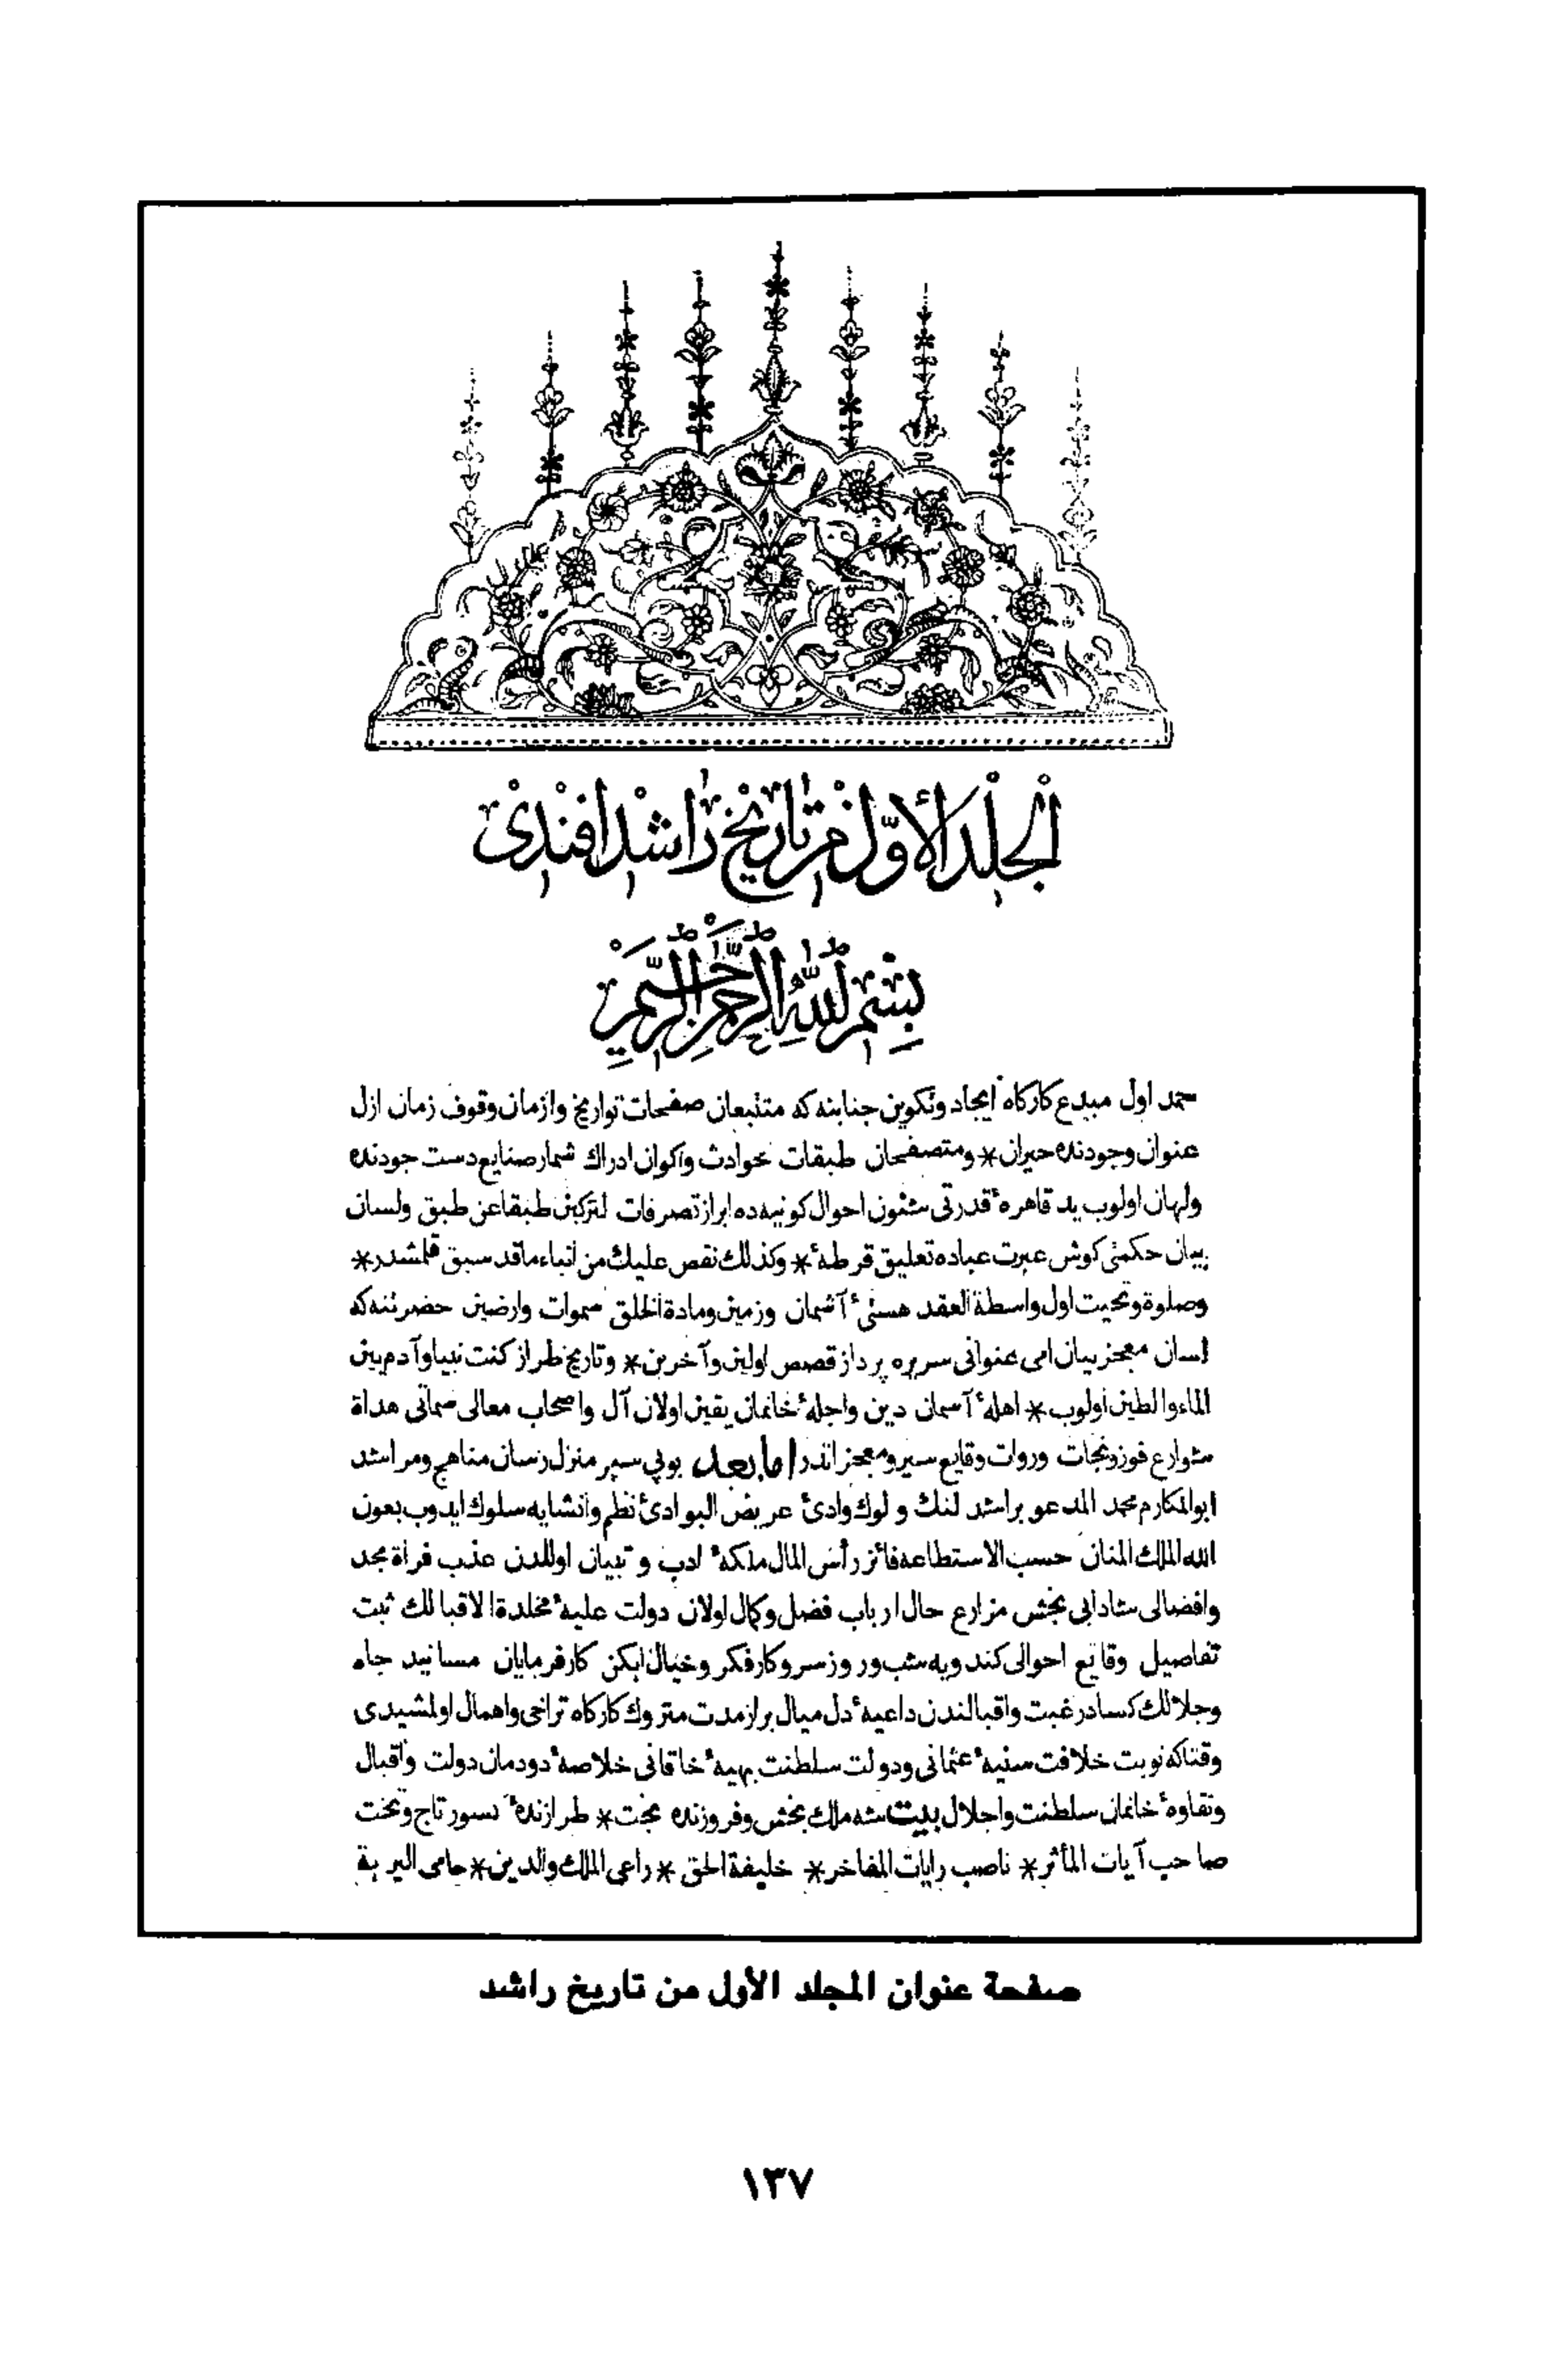 الجلد الأول من تاريخ راشد افندى
بسم الله الرحمن الرحيم
حمد اول مبدع كاركاه ايجاد وتكوين جنابنه كه متتبعان صفحات تواريخ وازمان وقوف زمان ازل
عنوان وجودنده حيران * ومتصفحان طبقات حوادث واكوان ادراك شمار صنايع دست جودنده
ولهان اولوب يد قاهرهٔ قدرتى شئون احوال كونيه ده ابراز تصرفات لتركبن طبقا عن طبق ولسان
بيان حكمتى كوش عبرت عباده تعليق قرطهٔ * وكذلك نقص عليك من انباء ما قد سبق قلمشدر *
وصلوة وتحيت اول واسطة العقد هستئ آسمان وزمين ومادة الخلق سموات وارضين حضرتنه كه
لسان معجز بيان امى عنوانى سربره پرداز قصص اولين وآخرين * وتاريخ طراز كنت نبيا وآدم بين
الماء والطين اولوب * اهلهٔ آسمان دين واجلهٔ خاندان يقين اولان آل واصحاب معالى سماتى هداة
شوارع فوز ونجات وروات وقايع سير ومعجزاتدر اما بعد بو پى سپر منزل رسان مناهج ومراشد
ابو المكارم محمد المدعو براشد لنك ولوك وادئ عريض البوادئ نظم وانشايه سلوك ايدوب بعون
الله الملك المنان حسب الاستطاعه فائز رأس المال ملكهٔ ادب وتبيان اولالدن عذب فراة مجد
وافضالى شادابى بخش مزارع حال ارباب فضل وكمال اولان دولت عليهٔ مخلدة الاقبالك ثبت
تفاصيل وقايع احوالى كندويه شب وروز سر وكار فكر وخيال ايكن كارفرمايان مسانيد جاه
وجلالك كساد رغبت واقبالندن داعيهٔ دل ميال بر از مدت متروك كاركاه تراخى واهمال اولمشيدى
وقتاكه نوبت خلافت سنيهٔ عثمانى ودولت سلطنت بهيهٔ خاقانى خلاصهٔ دودمان دولت واقبال
ونقاوهٔ خاندان سلطنت واجلال بيت شه ملك بخش وفروزنده بخت * طرازندهٔ دستور تاج وتخت
صاحب آيات المأثر * ناصب رايات المفاخر * خليفة الحق * راعى الملك والدين * حامى البرية
صفحة عنوان المجلد الأول من تاريخ راشد
١٣٧